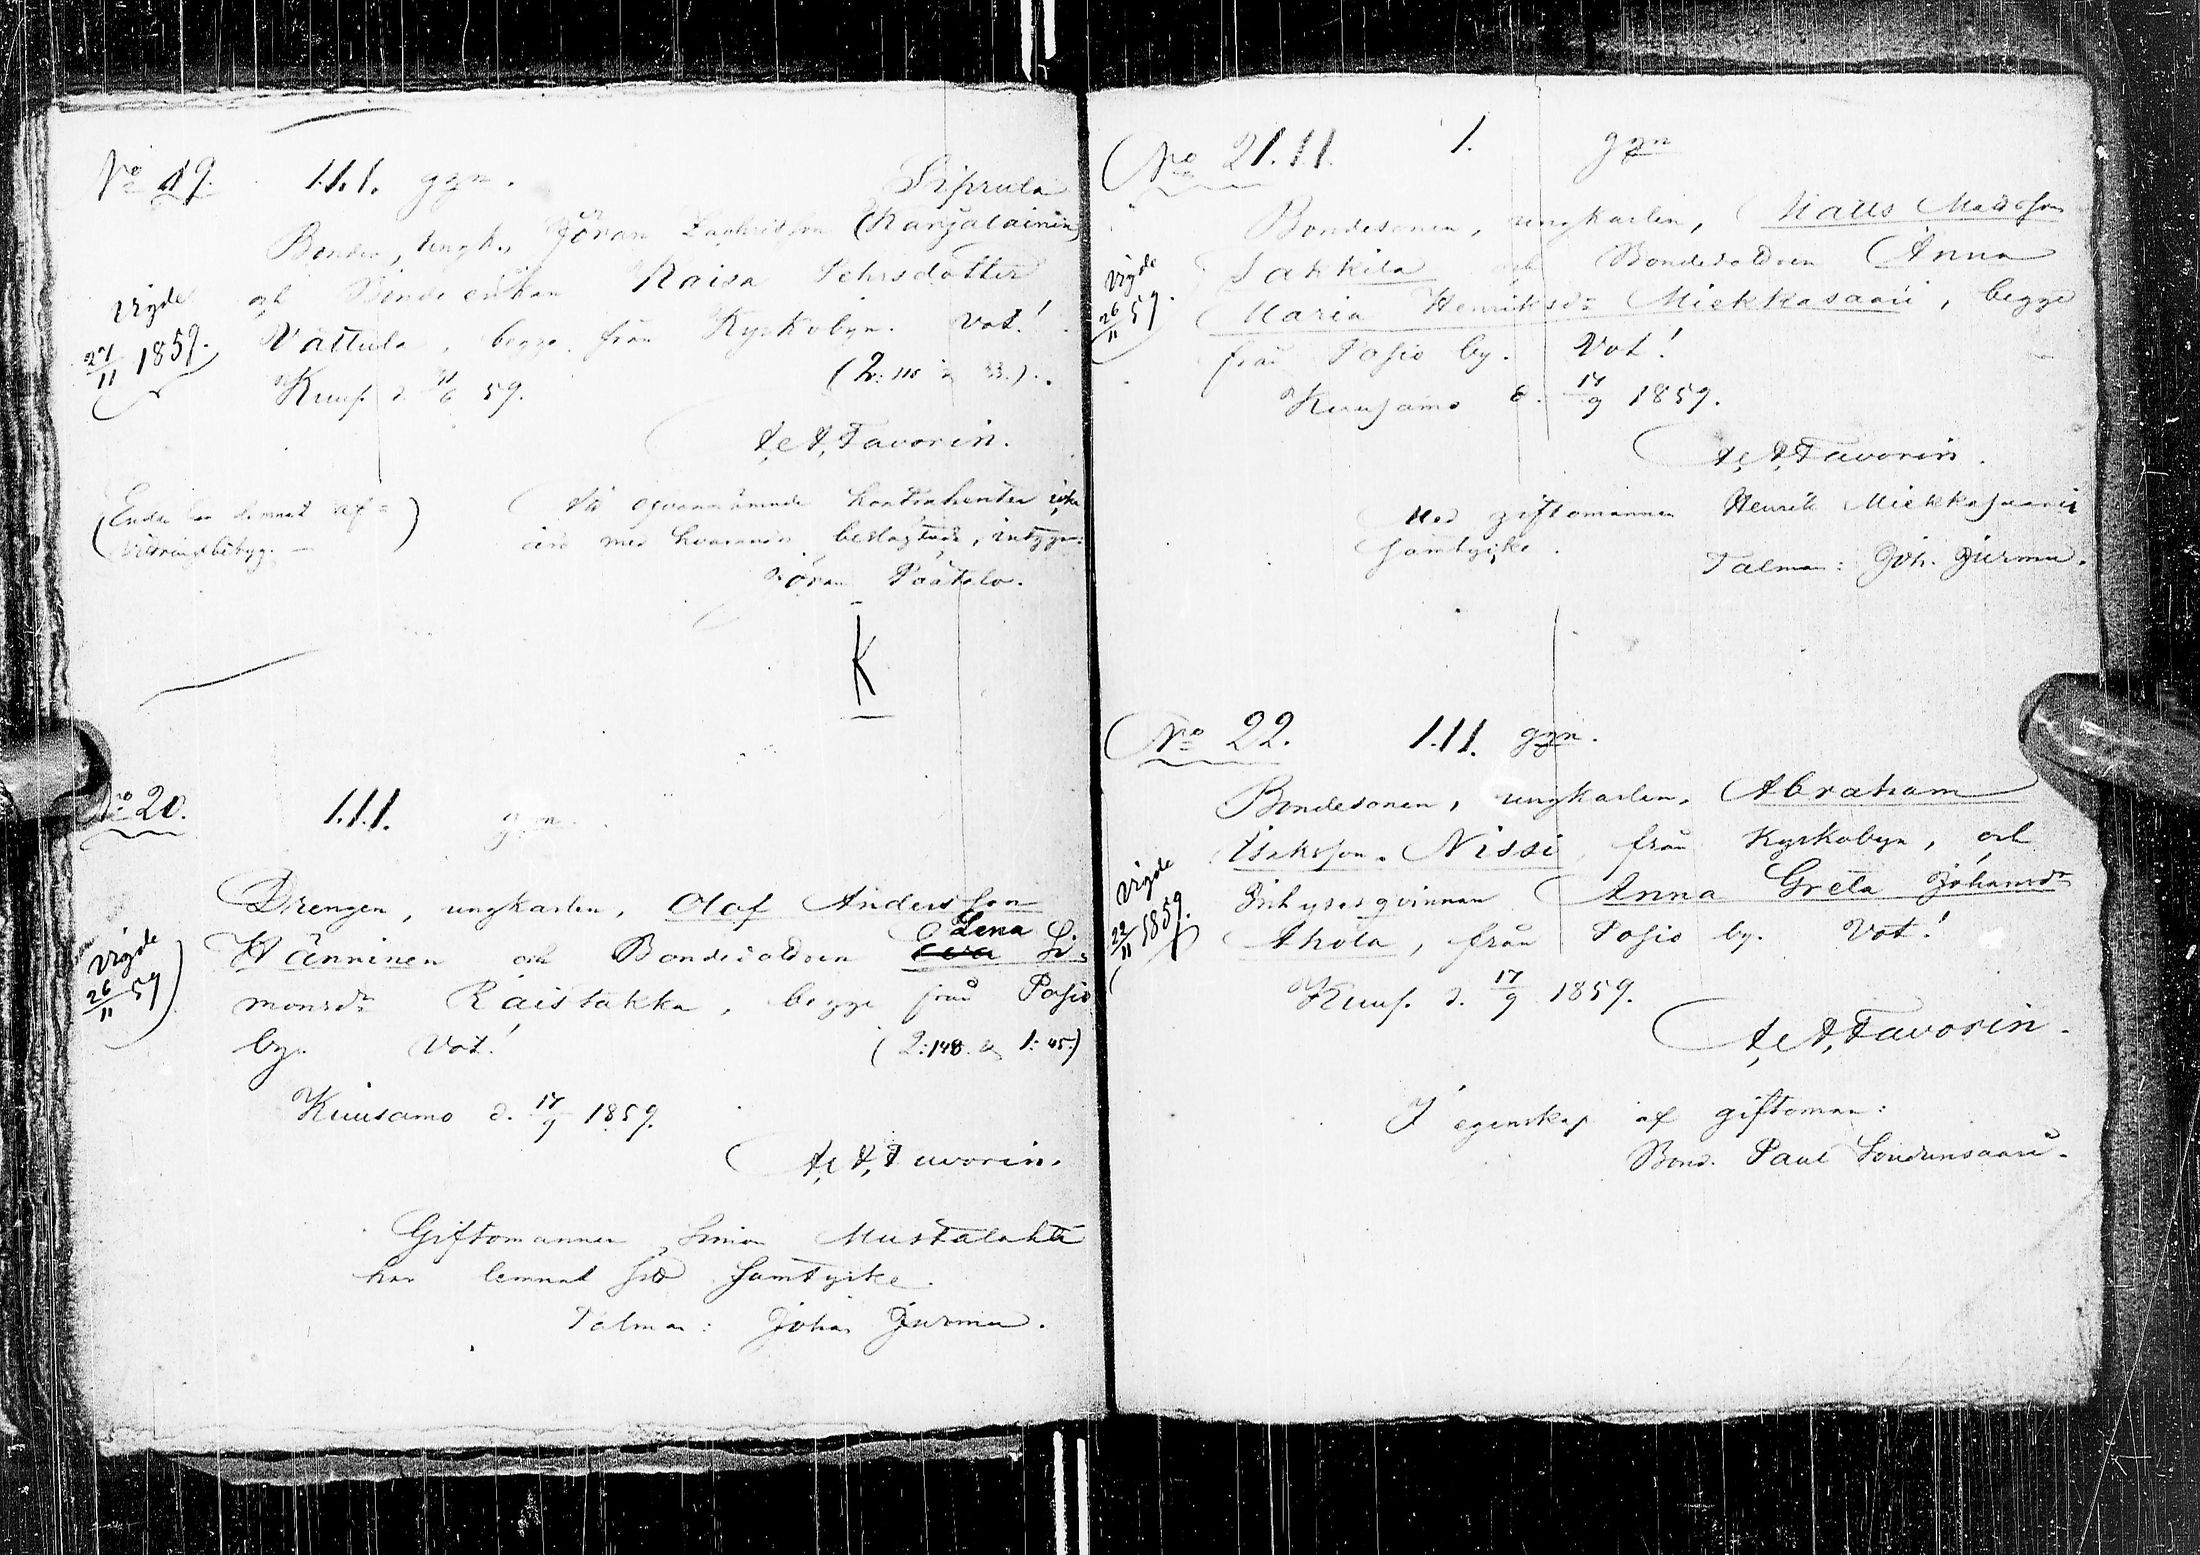 No 19. 1.1.1. ggn.
Siprula
Bonden, ungk. Jöran Zachrisson (Karjalainen)
och Bondeenkan Kaisa Pehrsdotter
Vattula, begge från Kyrkobyn. Vot!
Kuus. d. 11/6 59. (2: 110 & 33.)
Vigde
27/11 1859.
A. A. Favorin.
(Enkan har lemnat af=
vittringsbetyg. –)
Att ofvannämnde kontrahenter icke
äro med hvarandra beslägtade, intygar:
Jöran Päätalo.
K
No 20. 1.1.1. ggn.
Drengen, ungkarlen, Olof Andersson
Lena
Hänninen och Bondedottren Si=
monsdr Raistakka, begge från Posio
by. Vot! (2: 148. & 1: 45.)
Vigde
26/11 59
Kuusamo d. 17/9 1859.
A. A. Favorin.
Giftomannen Simon Mustalahti
har lemnat sitt samtycke.
Talman: Johan Jurmu.
No 21. 1.1. 1. ggn
Bondesonen, ungkarlen, Matts Mattsson
Jakkila och Bondedottren Anna
Maria Henriksdr Miekkasaari, begge
från Posio by. Vot!
Vigde
26/11 59.
Kuusamo d. 17/9 1859.
A. A. Favorin.
Med giftomannen Henrik Miekkasaaris
samtycke.
Talman: Joh. Jurmu.
No 22. 1.1.1. ggn.
Bondesonen, ungkarlen, Abraham
Isaksson Nissi, från Kyrkobyn, och
Inhysesqvinnan Anna Greta Johansdr
Ahola, från Posio by. Vot!
Vigde
22/11 1859.
Kuus. d. 17/9 1859.
A. A. Favorin.
I egenskap af giftoman:
Bond. Paul